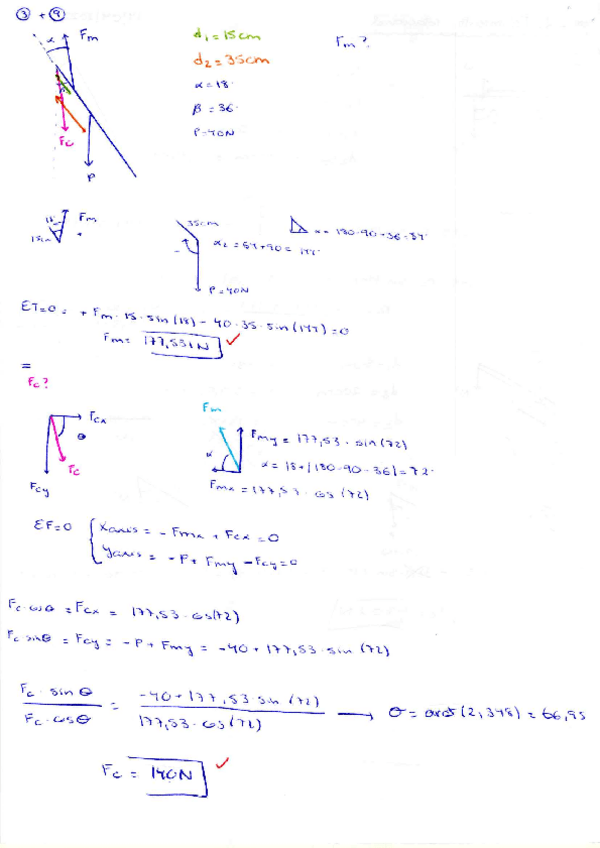 ③ + ⑨
α Fm d1 = 15cm Fm?
d2 = 35cm
α = 18·
β = 36·
P = 40N
Fc
P
18 Fm
15cm
35cm
α2 = 54+90 = 144·
α = 180-90-36 = 54·
P=40N
ΣT=0 = + Fm · 15 · sin(18) - 40 · 35 · sin(144) = 0
Fm = 177,531N ✓
=
Fc?
Fcx
θ
Fc
Fcy
Fm
Fmy = 177,53 · sin(72)
α
α = 18+(180-90-36) = 72·
Fmx = 177,53 · cos(72)
ΣF=0 { Xaxis = - Fmx + Fcx = 0
Yaxis = - P + Fmy - Fcy = 0
Fc · cosθ = Fcx = 177,53 · cos(72)
Fc · sinθ = Fcy = -P + Fmy = -40 + 177,53 · sin(72)
Fc · sin θ / Fc · cosθ = -40 + 177,53 · sin(72) / 177,53 · cos(72) → θ = arct(2,348) = 66,95
Fc = 140N ✓